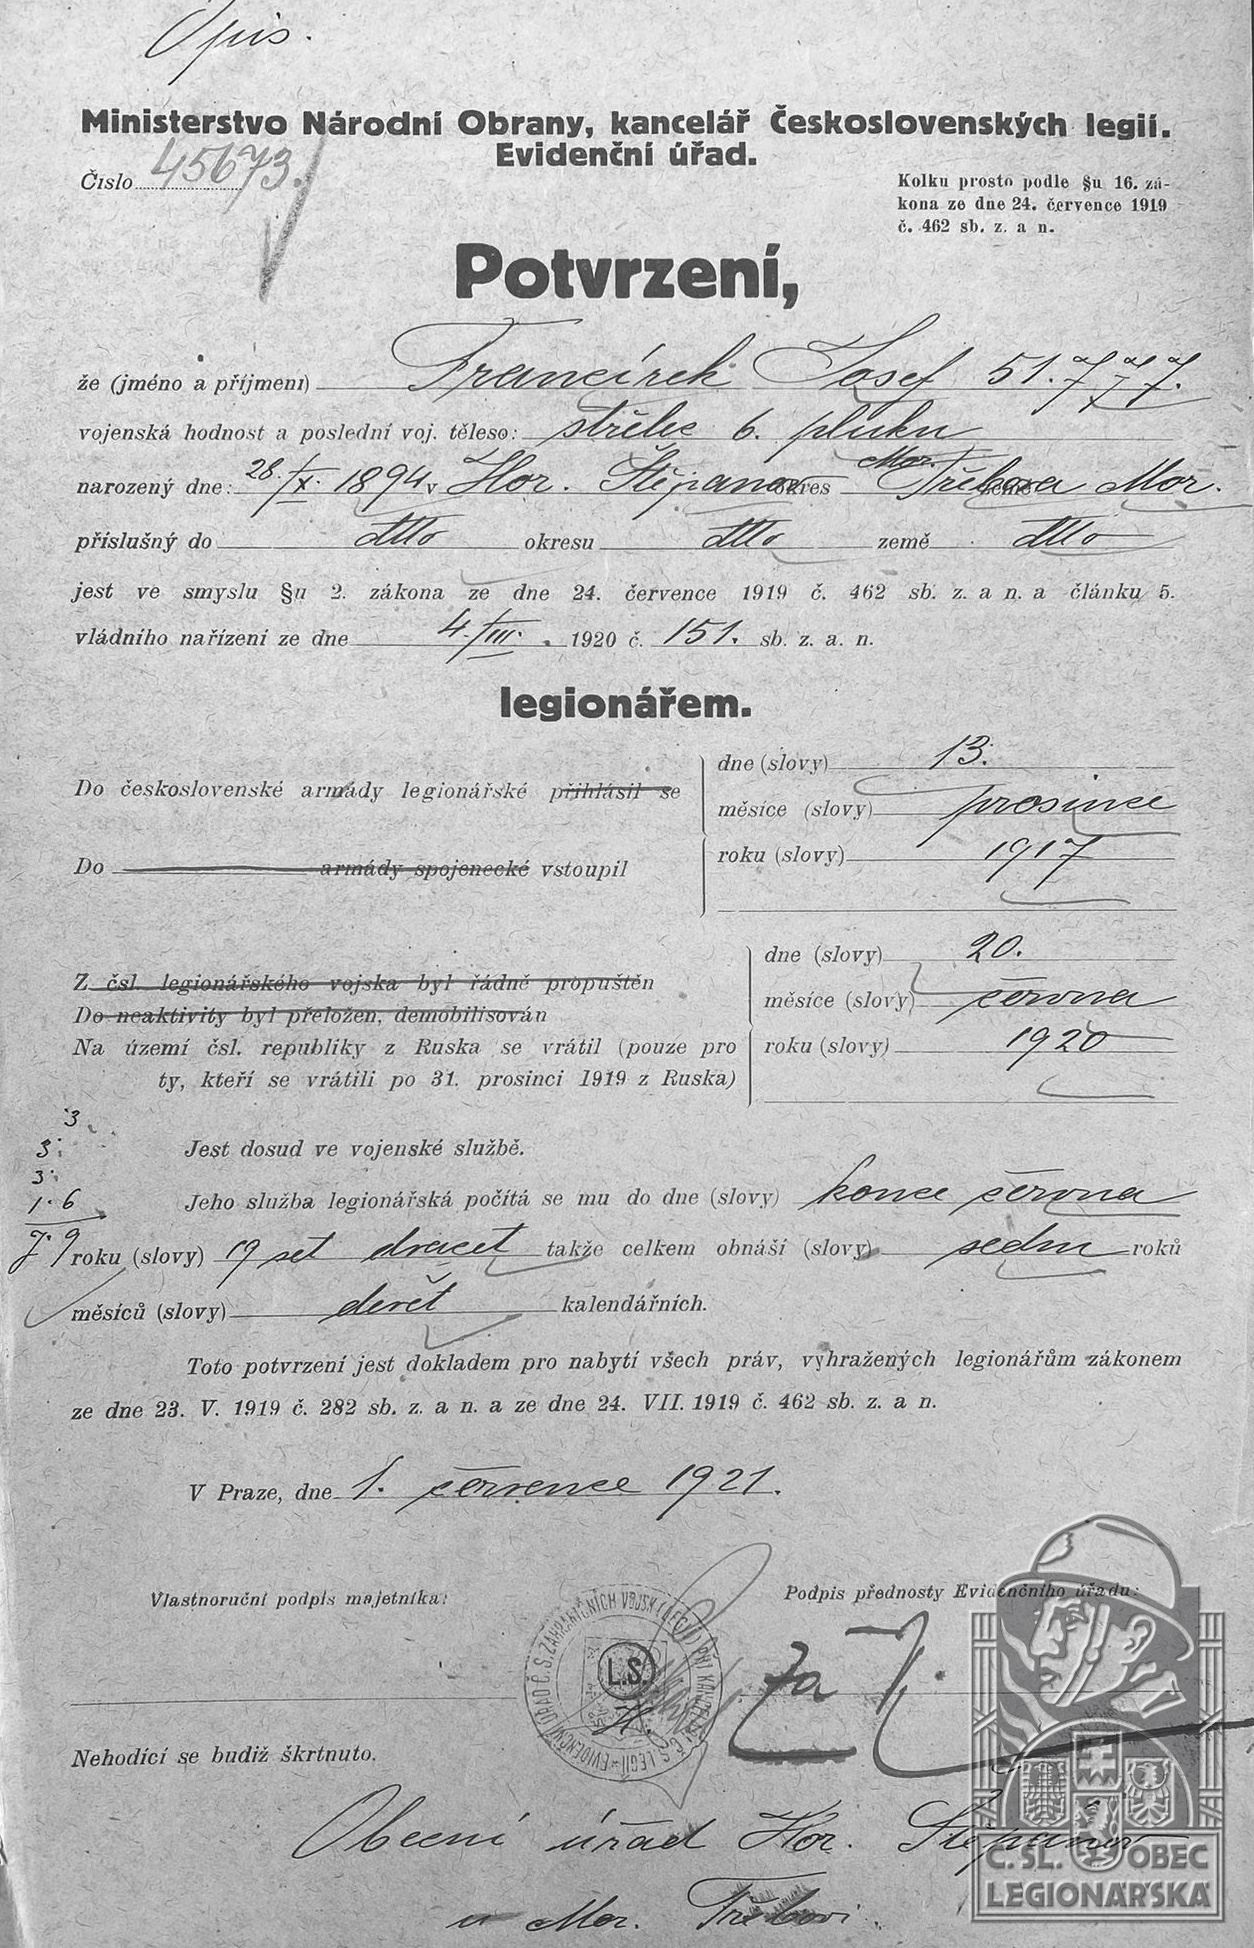 Opis.
Ministerstvo Národní Obrany, kancelář Československých legií.
Evidenční úřad.
Číslo 45673.
Kolku prosto podle §u 16. zá-
kona ze dne 24. července 1919
č. 462 sb. z. a n.
Potvrzení,
že (jméno a příjmení) Francírek Josef 51.777.
vojenská hodnost a poslední voj. těleso: střelec 6. pluku
narozený dne: 28./X. 1894 v Hor. Štěpanov okres Mor. Třebova země Mor.
příslušný do dtto okresu dtto země dtto
jest ve smyslu §u 2. zákona ze dne 24. července 1919 č. 462 sb. z. a n. a článku 5.
vládního nařízení ze dne 4./III. 1920 č. 151. sb. z. a. n.
legionářem.
Do československé armády legionářské přihlásil se
Do armády spojenecké vstoupil
dne (slovy) 13.
měsíce (slovy) prosince
roku (slovy) 1917
Z čsl. legionářského vojska byl řádně propuštěn
Do neaktivity byl přeložen, demobilisován
Na území čsl. republiky z Ruska se vrátil (pouze pro
ty, kteří se vrátili po 31. prosinci 1919 z Ruska)
dne (slovy) 20.
měsíce (slovy) června
roku (slovy) 1920
3
3
3
1·6
7·9
Jest dosud ve vojenské službě.
Jeho služba legionářská počítá se mu do dne (slovy) konce června
roku (slovy) 19 set dvacet takže celkem obnáší (slovy) sedm roků
měsíců (slovy) devět kalendářních.
Toto potvrzení jest dokladem pro nabytí všech práv, vyhražených legionářům zákonem
ze dne 23. V. 1919 č. 282 sb. z. a n. a ze dne 24. VII. 1919 č. 462 sb. z. a n.
V Praze, dne 1. července 1921.
Vlastnoruční podpis majetníka:
Podpis přednosty Evidenčního úřadu:
EVIDENČNÍ ÚŘAD Č.S. ZAHRANIČNÍCH VOJSK (LEGIÍ) PŘI KANCELÁŘI Č.S. LEGIÍ
L.S.
za
Nehodící se budiž škrtnuto.
Obecní úřad Hor. Štěpanov
u Mor. Třebovi.
Č. SL. OBEC
LEGIONÁŘSKÁ